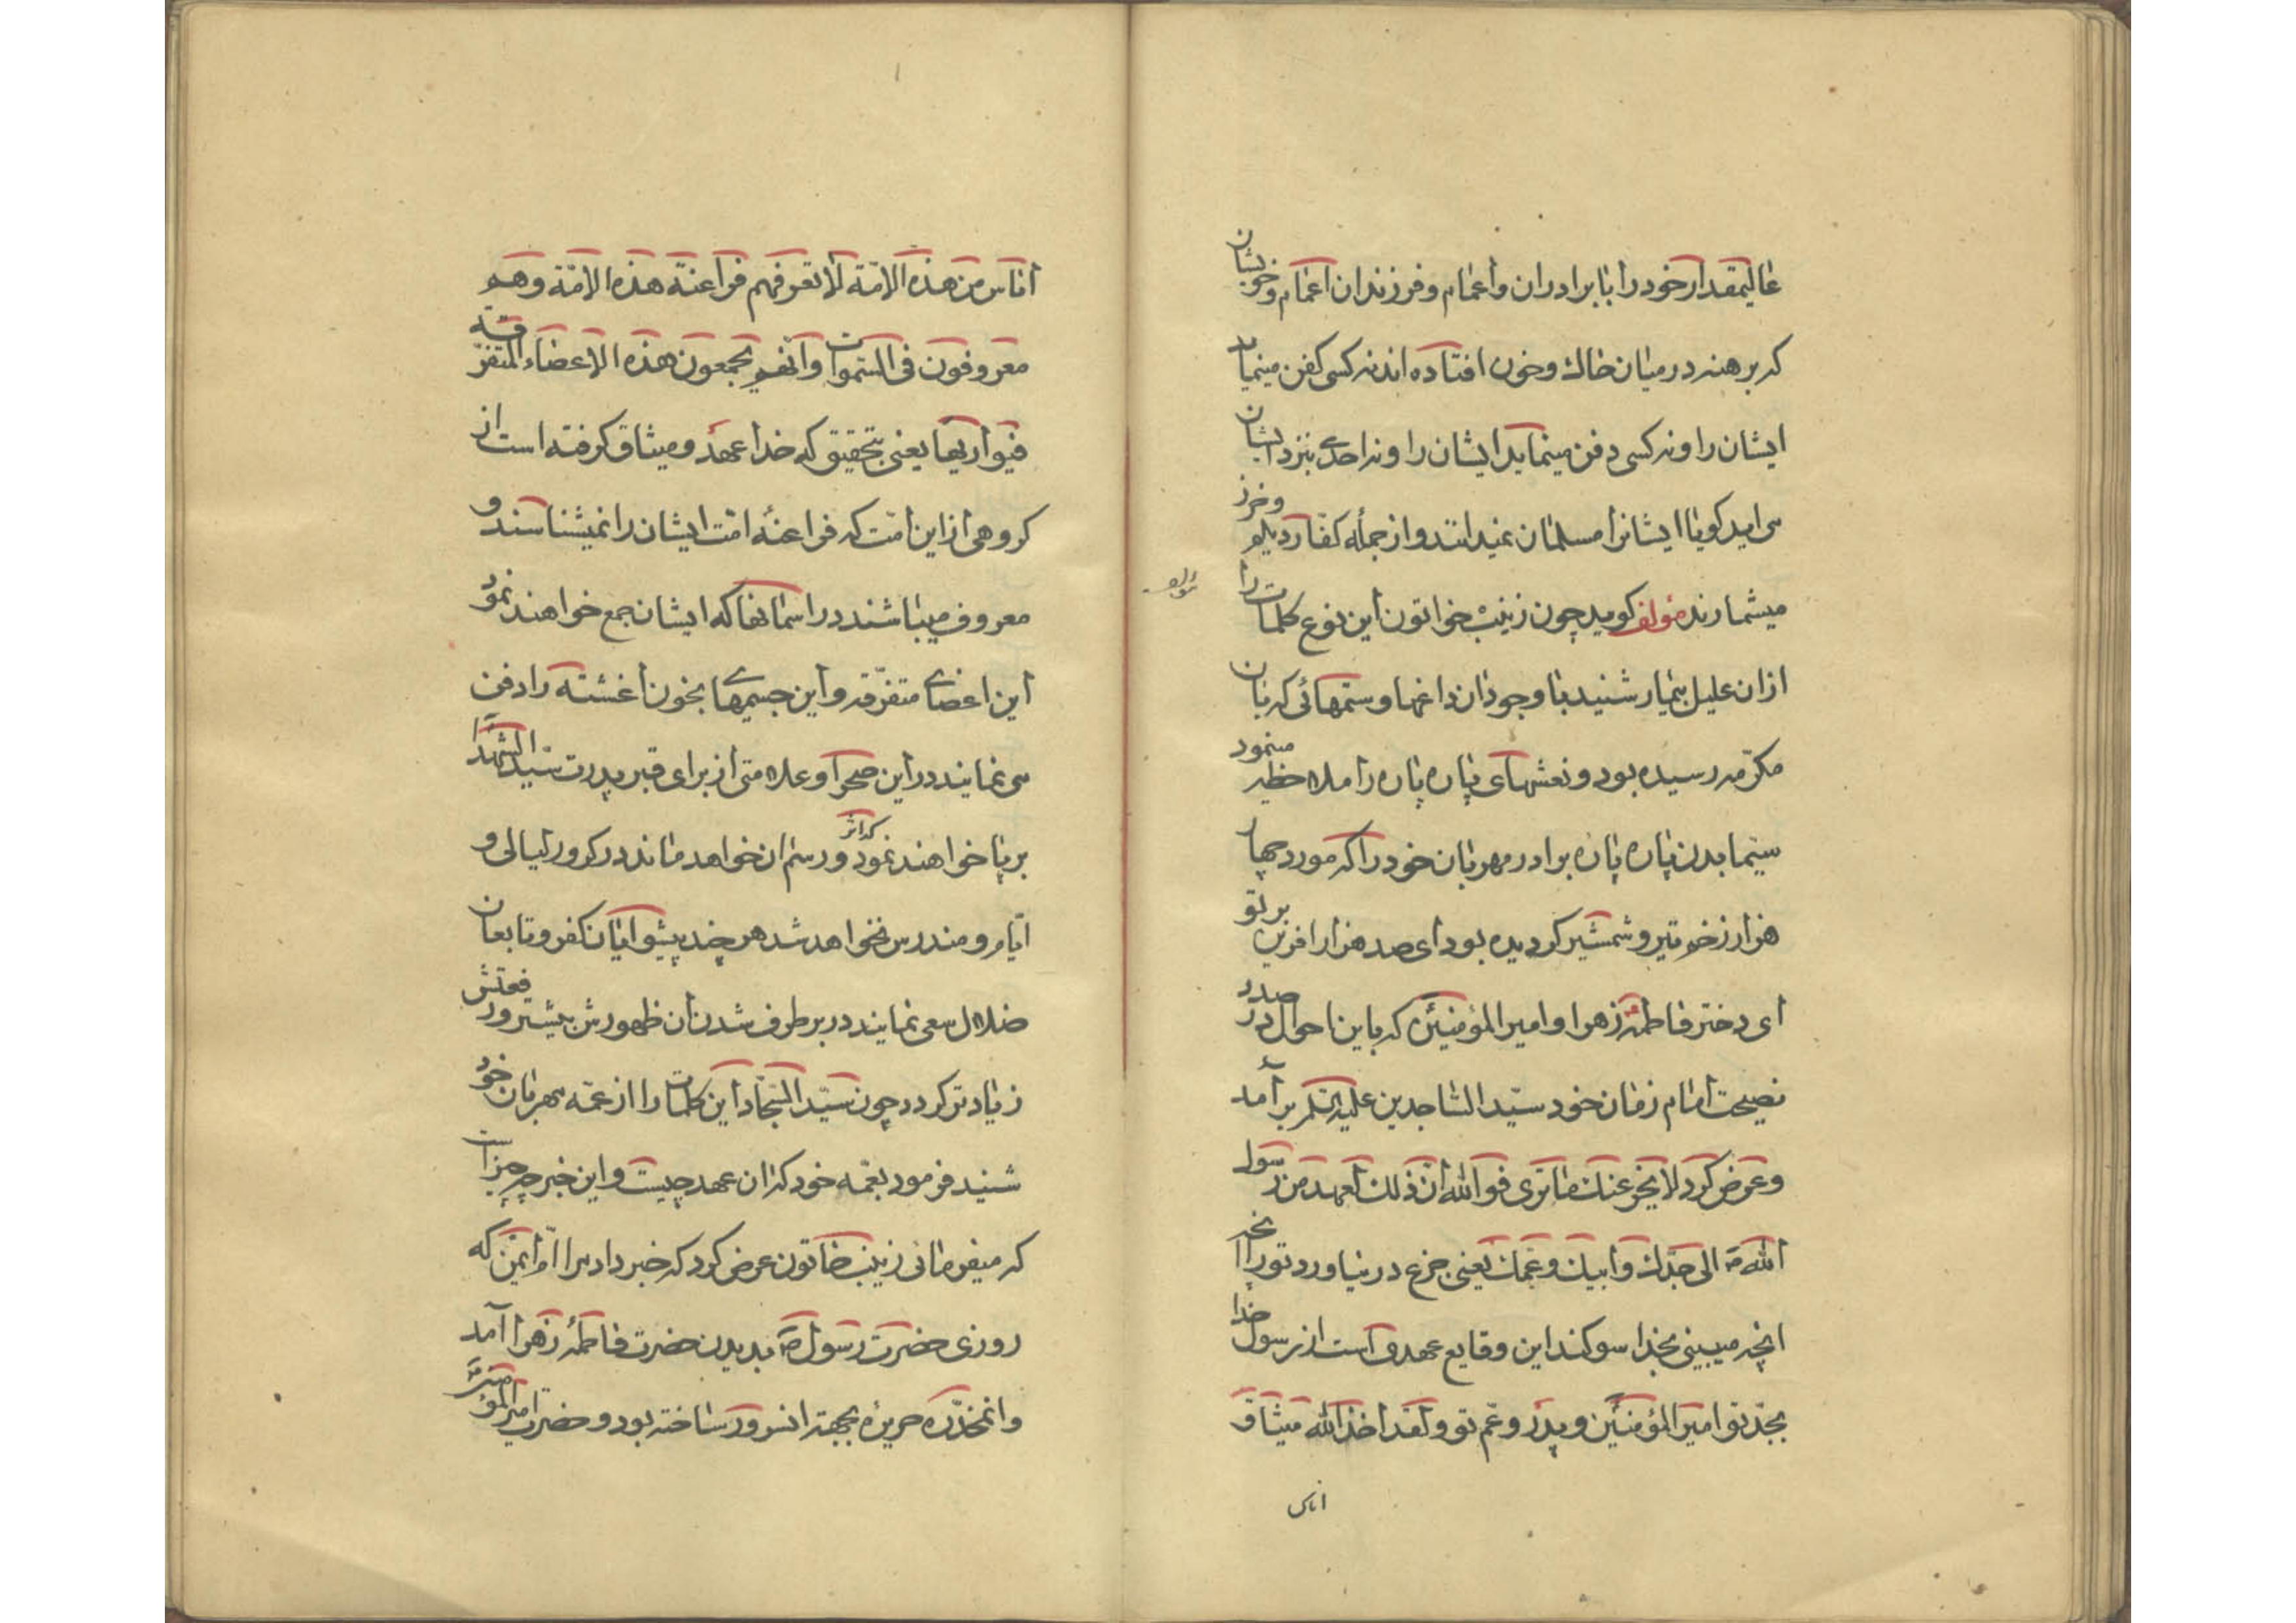 عالیمقدار خود را با برادران و اعمام و فرزندان اعمام و خویشان
که برهنه در میان خاك و خون افتاده اند نه کسی کفن مینماید
ایشان را و نه کسی دفن مینماید ایشان را و نه احدی بنزد ایشان
می اید کویا ایشانرا مسلمان نمیدانند و از جمله کفار دیلم و خزر
میشمارند مؤلف کوید چون زینب خواتون این نوع کلمات را
ازان علیل بیمار شنید با وجود ان داغها و ستمهائی که بان
مکرّمه رسیده بود و نعشهای پاره پاره را ملاحظه مینمود
سیّما بدن پاره پاره برادر مهربان خود را که مورد چهار
هزار زخم تیر و شمشیر کردیده بود ای صد هزار افرین بر تو
ای دختر فاطمهٔ زهرا و امیر المؤمنین که باین احوال در صدد
نصیحت امام زمان خود سیّد الساجدین علیه السلم بر آمد
و عرض کرد لا یجزعنك ما تری فو الله انّ ذلك لعهد من رسول
الله ص الی جدّك و ابیك و عمّك یعنی جزع در نیاورد تو را
انچه میبینی بخدا سوکند این وقایع عهدی است از رسول خدا
بجدّ تو امیر المؤمنین و پدر و عم تو و لقد اخذ الله میثاق
اناس
اناس من هذه الامّة لا تعرفهم فراعنة هذه الامّة و هم
معروفون فی السّموات و انّهم یجمعون هذه الاعضاء المتفرّقة
فیوارنها یعنی بتحقیق که خدا عهد و میثاق کرفته است از
کروهی از این امّت که فراعنهٔ امّت ایشان را نمیشناسند و
معروف میباشند در اسمانها که ایشان جمع خواهند نمود
این اعضای متفرّقه و این جسمهای بخون اغشته را و دفن
می نمایند در این صحرا و علامتی از برای قبر پدرت سیّد الشهدا
بر پا خواهند نمود که اثر و رسم ان خواهد ماند در کرور لیالی و
ایّام و مندرس نخواهد شد هر چند پیشوایان کفر و تابعان
ضلال سعی نمایند در بر طرف شدن ان ظهورش بیشتر و رفعتش
زیادتر کردد چون سیّد السّجّاد این کلمات را از عمّه مهربان خود
شنید فرمود بعمّه خود که ان عهد چیست و این خبر چه چیز است
که میفرمائی زینب خاتون عرض کرد که خبر داد مرا امّ ایمن که
روزی حضرت رسول ص بدیدن حضرت فاطمهٔ زهرا آمد
و انمخدّره حریرهٔ بجهة انسرور ساخته بود و حضرت امیر المؤمنین